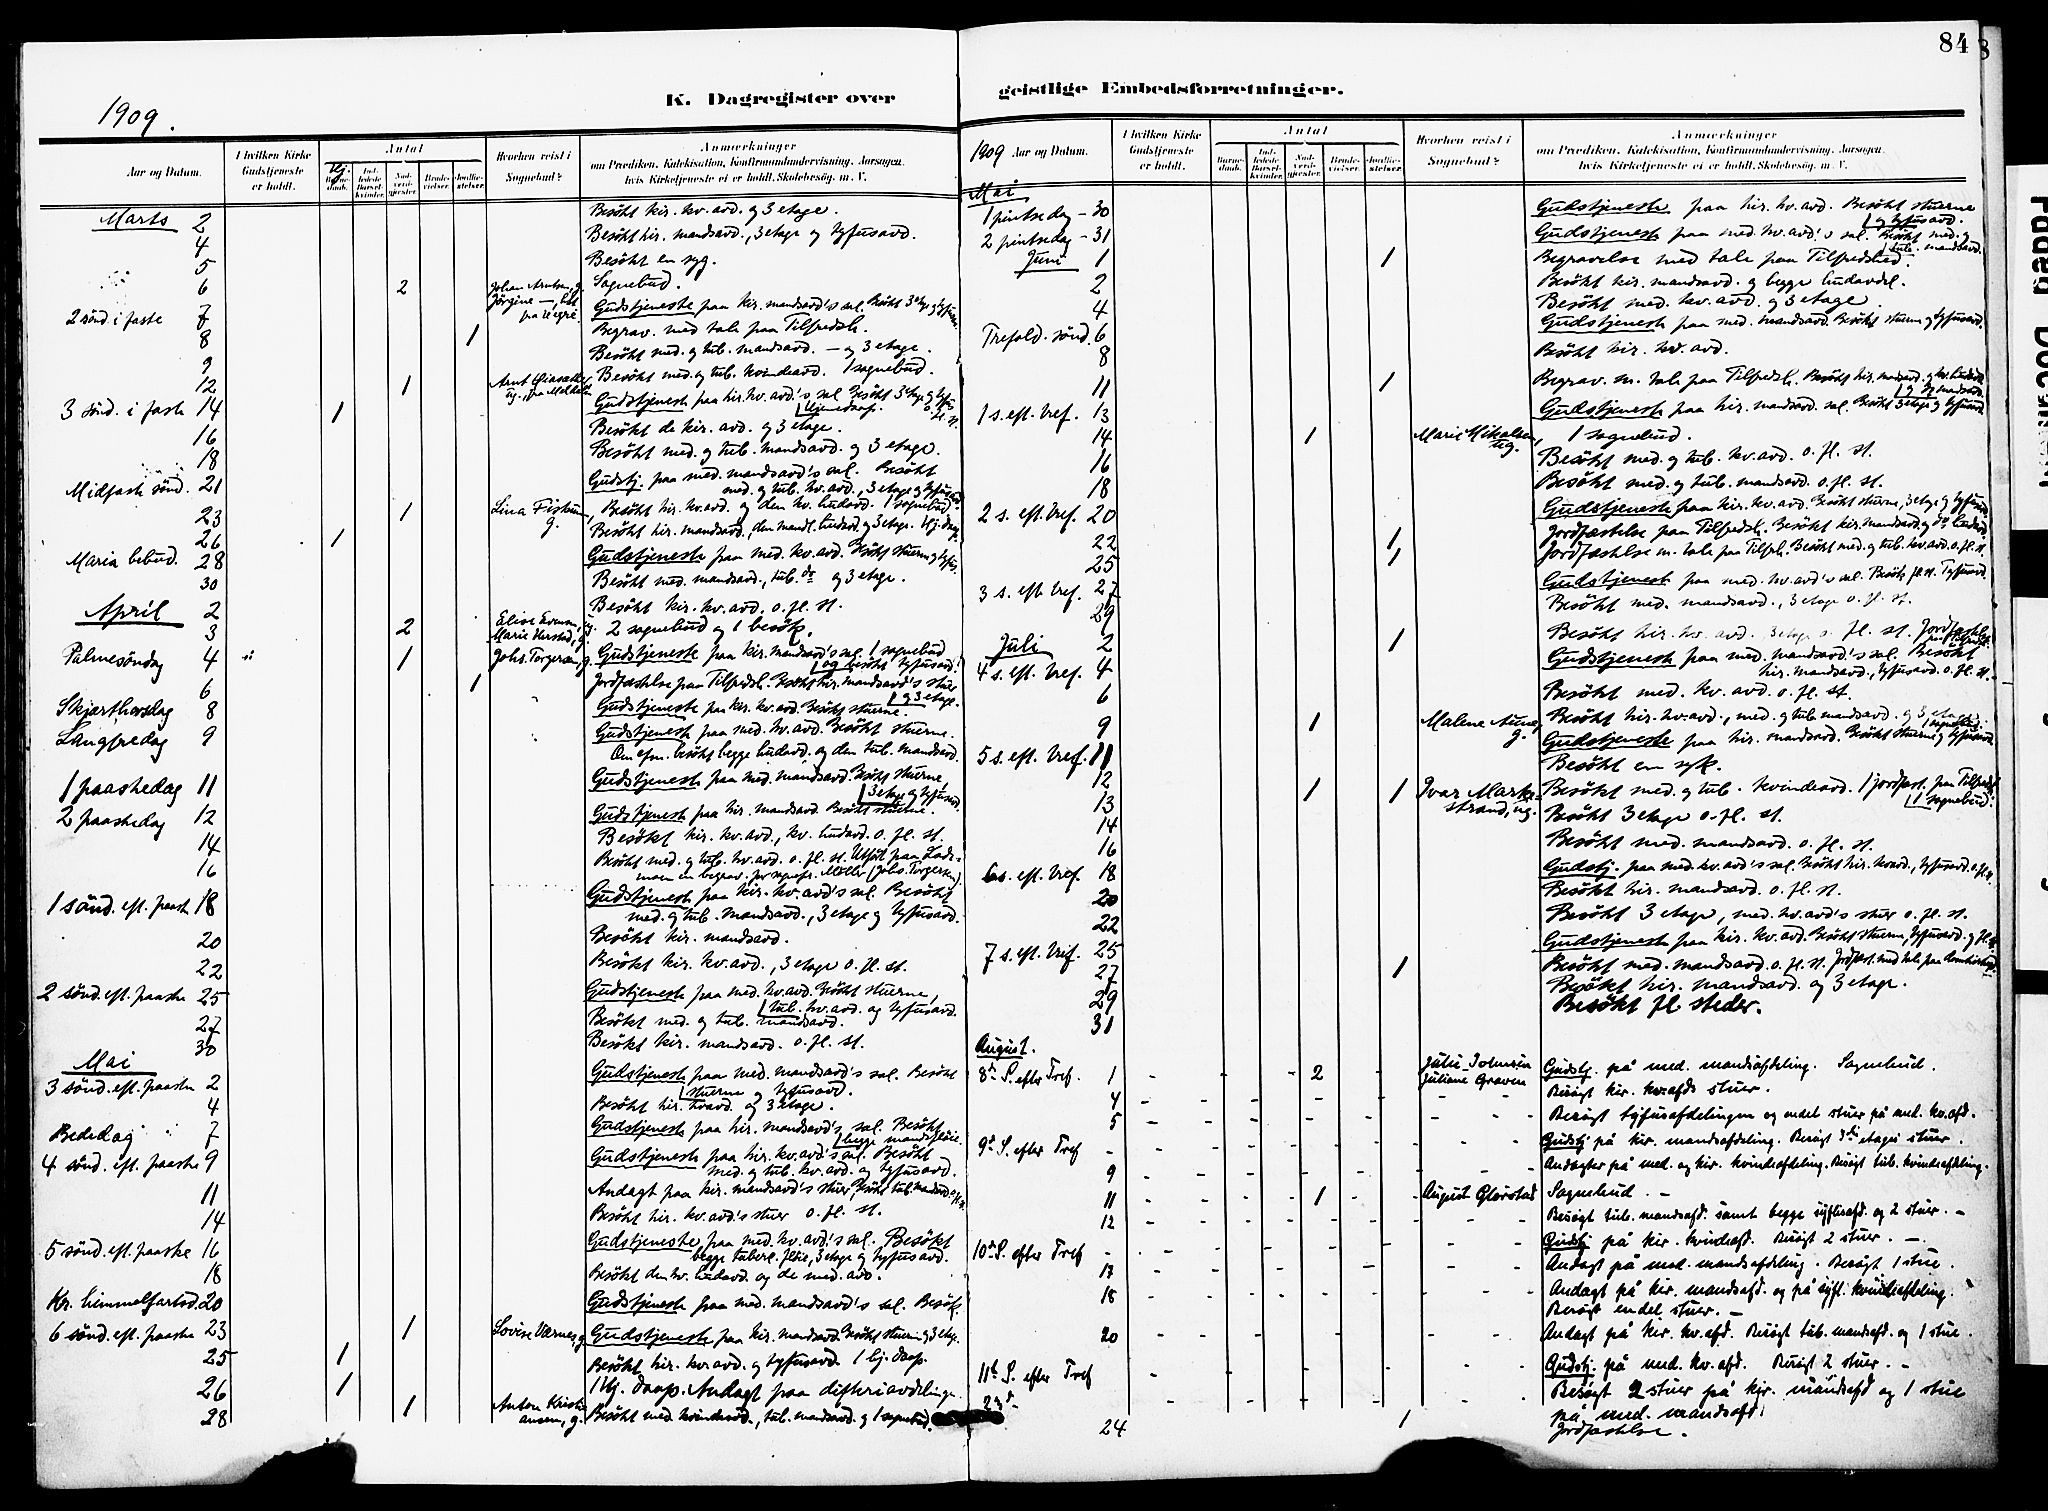 84
K. Dagregister over geistlige Embedsforretninger.
1909.
Aar og Datum.
I hvilken Kirke Gudstjeneste er holdt.
Antal
Hvorhen reist i Sognebud?
Anmærkninger
om Prædiken, Katekisation, Konfirmandundervisning, Aarsagen, hvis Kirketjeneste ei er holdt, Skolebesøg, m. V.
Marts 2 Besökt kir. kv. avd. og 3 etage.
4 Besökt kir. mandsavd., 3 etage og tyfusavd.
5 Besökt en syg.
6 2 Sognebud.
2 sönd. i faste 7 Gudstjeneste paa kir. mandsavd's sal.
8 1 Begrav. med tale paa Tilfredsh.
9 Besökt med. og tub. mandsavd. - og 3 etage.
12 1 Besökt med. og tub. kvindeavd. 1 sognebud.
3 sönd. i faste 14 1 Gudstjeneste paa kir. kv. avd.'s sal
16 Besökt de kir. avd. og 3 etage.
18 Besökt med. og tub. mandsavd. og 3 etage.
Midfaste sönd. 21 Gudstj. paa med. mandsavd's sal. Besökt
med. og tub. kv. avd., 3 etage og tyfusavd.
23 1 Lina Fiskum, g. Besökt kir. kv. avd. og den kv. hudavd. 1 sognebud.
26 1 Besökt kir. mandsavd., den mandl. hudavd. og 3 etage. Hj. daap.
Maria bebud. 28 Gudstjeneste paa med. kv. avd. Besökt stuerne og tyfus.
30 Besökt med. mandsavd., tub. do og 3 etage.
April 2 Besökt kir. kv. avd. o. fl. st.
3 2 2 sognebud og 1 besök.
Palmesöndag 4 1 Johs. Torgersen, g. Gudstjeneste paa kir. mandsavd's sal. 1 sognebud
og besökt tyfusavd.
6 1 Jordfæstelse paa Tilfredsh. Besökt kir. mandsavd's stuer
og 3 etage.
Skjærthorsdag 8 Gudstjeneste paa kir. kv. avd. Besökt stuerne.
Langfredag 9 Gudstjeneste paa med. kv. avd. Besökt stuerne.
Om efm. besökt begge hudavd. og den tub. mandsavd.
1 paaskedag 11 Gudstjeneste paa med. mandsavd. Besökt stuerne
3 etage og tyfusavd.
2 paaskedag 12 Gudstjeneste paa kir. mandsavd. Besökt stuerne.
14 Besökt kir. kv. avd., kv. hudavd. o. fl. st.
16 Besökt med. og tub. kv. avd. o. fl. st. Utfört paa Lade-
moen en begrav. for sognepr. Möller (Johs. Torgersen).
1 sönd. eft. paaske 18 Gudstjeneste paa kir. kv. avd's sal. Besökt
med. og tub. mandsavd., 3 etage og tyfusavd.
20 Besökt kir. mandsavd.
22 Besökt kir. kv. avd., 3 etage o. fl. st.
2 sönd. eft. paaske 25 Gudstjeneste paa med. kv. avd. Besökt stuerne,
tub. kv. avd. og tyfusavd.
27 Besökt med. og tub. mandsavd.
30 Besökt kir. mandsavd. o. fl. st.
Mai
3 sönd. eft. paaske 2 Gudstjeneste paa med. mandsavd's sal. Besökt
stuerne og tyfusavd.
4 Besökt kir. kvavd. og 3 etage.
Bededag 7 Gudstjeneste paa kir. mandsavd's sal. Besökt
4 sönd. eft. paaske 9 Gudstjeneste paa kir. kv. avd's sal. Besökt
med. og tub. kv. avd. og tyfusavd.
11 Andagt paa kir. mandsavd's stuer, Besökt tub. mandsavd. o. fl. st.
14 Besökt kir. kv. avd.'s stuer o. fl. st.
5 sönd. eft. paaske 16 Gudstjeneste paa med. kv. avd's sal. Besökt
begge tuberk. fløie, 3 etage og tyfusavd.
18 Besökt den kv. hudavd. og de med. avd.
Kr. himmelfartsd. 20 Gudstjeneste paa med. mandsavd's sal. Besök
6 sönd. eft. paaske 23 1 Lovise Værnes, g. Gudstjeneste paa kir. mandsavd. Besökt stuerne og 3 etage.
25 1 Besökt kir. kv. avd. og tyfusavd. 1 hj. daap.
26 1 1 hj. daap. Andagt paa difteriavdelingen.
28 1 Anton Kristiansen, g. Besökt med. kvindeavd., tub. mandsavd. og 1 sognebud.
1909 Aar og Datum.
I hvilken Kirke Gudstjeneste er holdt.
Antal
Hvorhen reist i Sognebud?
Anmærkninger
om Prædiken, Katekisation, Konfirmandundervisning, Aarsagen, hvis Kirketjeneste ei er holdt, Skolebesøg, m. V.
Mai
1 pintsedag - 30 Gudstjeneste paa kir. kv. avd. Besökt stuerne
og tyfusavd.
2 pintsedag - 31 Gudstjeneste paa med. kv. avd.'s sal. Besökt med. og
tub. mandsavd.
Juni 1 1 Begravelse med tale paa Tilfredshed.
2 Besökt kir. mandsavd. og begge hudavdel.
4 Besökt med. kv. avd. og 3 etage.
Trefold. sönd. 6 Gudstjeneste paa med. mandsavd. Besökt stuerne og tyfusavd.
8 Besökt kir. kv. avd.
11 1 Begrav. m. tale paa Tilfredsh. Besökt kir. mandsavd.
1 s. eft. tref. 13 Gudstjeneste paa kir. mandsavd. sal. Besökt 3 etage og tyfusavd.
14 1 Marie Mikalsen, ug. 1 sognebud.
16 Besökt med. og tub. kv. avd. o. fl. st.
18 Besökt med. og tub. mandsavd. o. fl. st.
2 s. eft. tref. 20 Gudstjeneste paa kir. kv. avd. Besökt stuerne, 3 etage og tyfusavd.
22 1 Jordfæstelse paa Tilfredsh. Besökt kir. mandsavd.
25 1 Jordfæstelse m. tale paa Tilfr. Besökt med. og tub. kv. avd. o. fl. st.
3 s. eft. tref. 27 Gudstjeneste paa med. kv. avd's sal. Besökt fl. st. Tyfusavd.
29 Besökt med. mandsavd., 3 etage o. fl. st.
Juli 2 1 Besökt kir. kv. avd. 3 etage o. fl. st. Jordfæstelse
4 s. eft. tref. 4 Gudstjeneste paa med. mandsavd.'s sal. Besökt
kir. mandsavd., tyfusavd. o. fl. st.
6 Besökt med. kv. avd. o. fl. st.
9 1 Malene Aune, g. Besökt kir. kv. avd., med. og tub. mandsavd. og 3 etage.
5 s. eft. tref. 11 Gudstjeneste paa kir. mandsavd. Besökt stuerne og tyfusavd.
12 Besökt en syk.
13 1 1 Ivar Mark-
strand, ug. Besökt med. og tub. kvindeavd. 1 jordfæst. paa Tilfredsh.
1 sognebud.
14 Besökt 3 etage o. fl. st.
16 Besökt med. mandsavd. o. fl. st.
6 s. eft. tref. 18 Gudstj. paa med. kv. avd's sal. Besökt kir. kvavd., tyfusavd. o. fl. st.
20 Besökt kir. mandsavd. o. fl. st.
22 Besökt 3 etage, med. kv. avd's stuer o. fl. st.
7 s. eft. tref. 25 Gudstjeneste paa kir. kv. avd. Besökt stuerne, tyfusavd. og fl. st.
27 1 Besökt med. mandsavd. o. fl. st. Jordfæst. med tale paa
29 Besökt kir. mandsavd. og 3 etage.
31 Besökt fl. steder.
August.
8de S. efter Tref. 1 2 Julie Johnsen
Juliane Graven Gudstj. på med. mandsafdeling. Sognebud.
4 Besøgt kir. kv. afds stuer.
5 Besøgt tyfusafdelingen og endel stuer på med. kv. afd.
9de S. efter Tref Gudstj på kir. mandsafdeling. Besøgt 3die etages stuer.
9 Andagter på med. og kir. kvindeafdeling. Besøgt tub. kvindeafdeling.
11 1 August Glørstad Sognebud. -
12 Besøgt tub. mandsafd. samt begge syfilisafd. og 2 stuer. -
10de S. efter Tref Gudstj på kir. kvindeafd. Besøgt 2 stuer. -
17 Andagt på med. mandsafdeling. Besøgt 1 stue.
18 Andagt på kir. mandsafd. og på syfl. kvindeafdeling.
Besøgt endel stuer. -
20 Andagt på kir. kv. afd. Besøgt tub. mandsafd. og 1 stue.
11te S. efter Tref Gudstj. på med. kv. afd. Besøgt 2 stuer. -
23d. Besøgt 2 stuer på kir. mandsafd og 1 stue
på med. mandsafd.
24 1 Jordfæstelse.